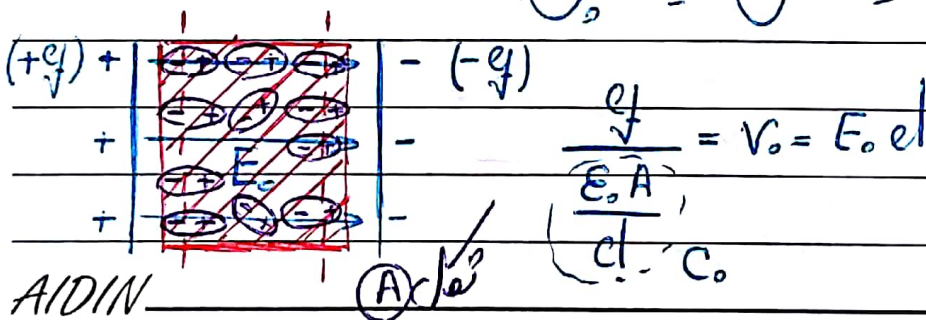 (+q) + - (-q)
- + - + - +
- + - + - +
+ - + -
E₀
- +
+ - + - + - + -
q / (ε₀A / d) = V₀ = E₀ d
C₀
AIDIN
A